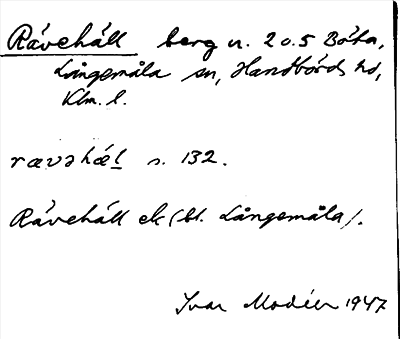 Råvehäll berg n. 2 o. 5 Böta,
Långemåla sn, Handbörds hd,
Klm. l.
rævəhæl s. 132.
Råvehäll ek (bl. Långemåla).
Ivar Modéer 1947